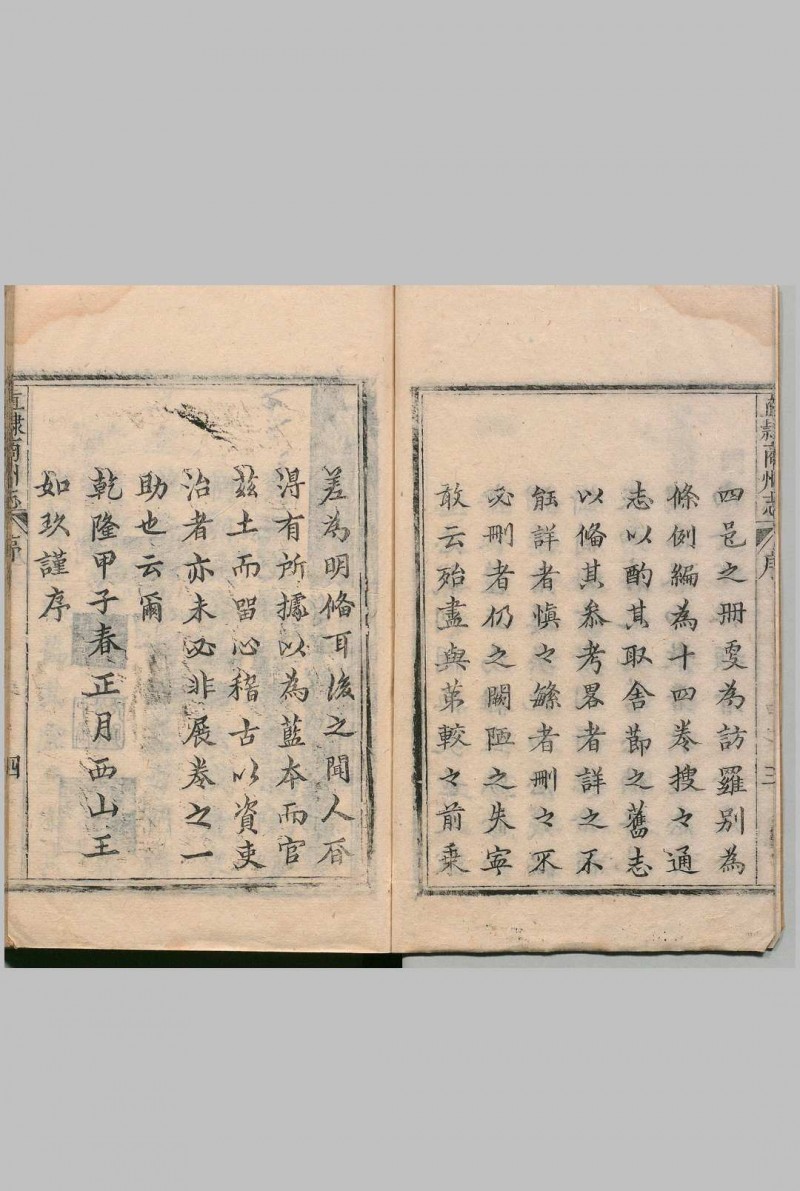 直隸商州志 序 三
四邑之冊雯為訪羅別為
條例編為十四卷搜々通
志以酌其取舍節之舊志
以俻其叅考畧者詳之不
能詳者慎々繁者刪々不
必刪者仍之闕陋之失寧
敢云殆盡與苐較々前乗
差為明俻耳後之聞人
淂有所據以為藍本而官
茲土而留心稽古以資吏
治者亦未必非展卷之一
助也云爾
乾隆甲子春正月西山王
如玖謹序
直隸商州志 序 四